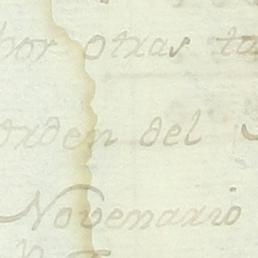 por otras
orden del
Novenario